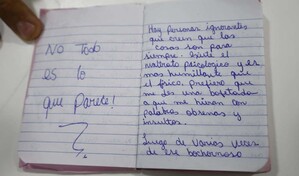 No Todo
es lo
que Parece!
Hay personas ignorantes
que creen que las
cosas son para
siempre. Existe el
maltrato psicologico y es
mas humillante que
el fisico, prefiero que
me des una bofetada
a que me hieran con
palabras obsenas y
insultos.
Surge de varios
de ese bochornoso